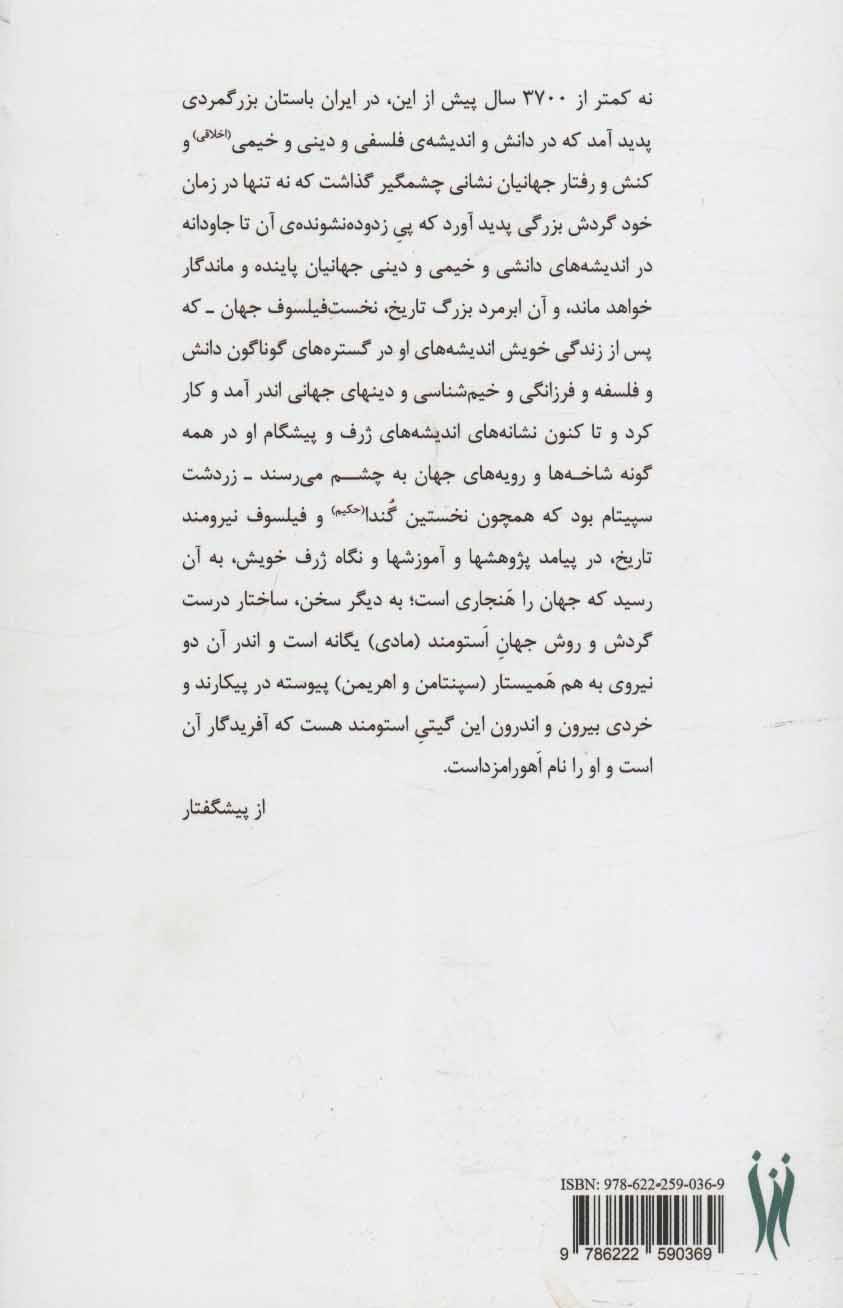 نه کمتر از ۳۷۰۰ سال پیش از این، در ایران باستان بزرگمردی
پدید آمد که در دانش و اندیشه‌ی فلسفی و دینی و خیمی(اخلاقی) و
کنش و رفتار جهانیان نشانی چشمگیر گذاشت که نه تنها در زمان
خود گردش بزرگی پدید آورد که پیِ زدوده‌نشونده‌ی آن تا جاودانه
در اندیشه‌های دانشی و خیمی و دینی جهانیان پاینده و ماندگار
خواهد ماند، و آن ابرمرد بزرگ تاریخ، نخست‌فیلسوف جهان ـ که
پس از زندگی خویش اندیشه‌های او در گستره‌های گوناگون دانش
و فلسفه و فرزانگی و خیم‌شناسی و دینهای جهانی اندر آمد و کار
کرد و تا کنون نشانه‌های اندیشه‌های ژرف و پیشگام او در همه
گونه شاخـه‌ها و رویه‌های جهان به چشـــم می‌رسند ـ زردشت
سپیتام بود که همچون نخستین گُندا(حکیم) و فیلسوف نیرومند
تاریخ، در پیامد پژوهشها و آموزشها و نگاه ژرف خویش، به آن
رسید که جهان را هَنجاری است؛ به دیگر سخن، ساختار درست
گردش و روش جهانِ اَستومند (مادی) یگانه است و اندر آن دو
نیروی به هم هَمیستار (سپنتامن و اهریمن) پیوسته در پیکارند و
خردی بیرون و اندرون این گیتیِ استومند هست که آفریدگار آن
است و او را نام اَهورامزداست.
از پیشگفتار
ISBN: 978-622-259-036-9
9 786222 590369